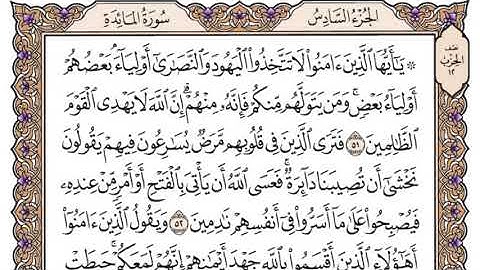 الجزء السادس
سورة المائدة
نصف
الحزب
١٢
۞ يَٰٓأَيُّهَا ٱلَّذِينَ ءَامَنُواْ لَا تَتَّخِذُواْ ٱلۡيَهُودَ وَٱلنَّصَٰرَىٰٓ أَوۡلِيَآءَۘ بَعۡضُهُمۡ
أَوۡلِيَآءُ بَعۡضٖۚ وَمَن يَتَوَلَّهُم مِّنكُمۡ فَإِنَّهُۥ مِنۡهُمۡۗ إِنَّ ٱللَّهَ لَا يَهۡدِي ٱلۡقَوۡمَ
ٱلظَّٰلِمِينَ ٥١ فَتَرَى ٱلَّذِينَ فِي قُلُوبِهِم مَّرَضٞ يُسَٰرِعُونَ فِيهِمۡ يَقُولُونَ
نَخۡشَىٰٓ أَن تُصِيبَنَا دَآئِرَةٞۚ فَعَسَى ٱللَّهُ أَن يَأۡتِيَ بِٱلۡفَتۡحِ أَوۡ أَمۡرٖ مِّنۡ عِندِهِۦ
فَيُصۡبِحُواْ عَلَىٰ مَآ أَسَرُّواْ فِيٓ أَنفُسِهِمۡ نَٰدِمِينَ ٥٢ وَيَقُولُ ٱلَّذِينَ ءَامَنُوٓاْ
أَهَٰٓؤُلَآءِ ٱلَّذِينَ أَقۡسَمُواْ بِٱللَّهِ جَهۡدَ أَيۡمَٰنِهِمۡ إِنَّهُمۡ لَمَعَكُمۡۚ حَبِطَتۡ